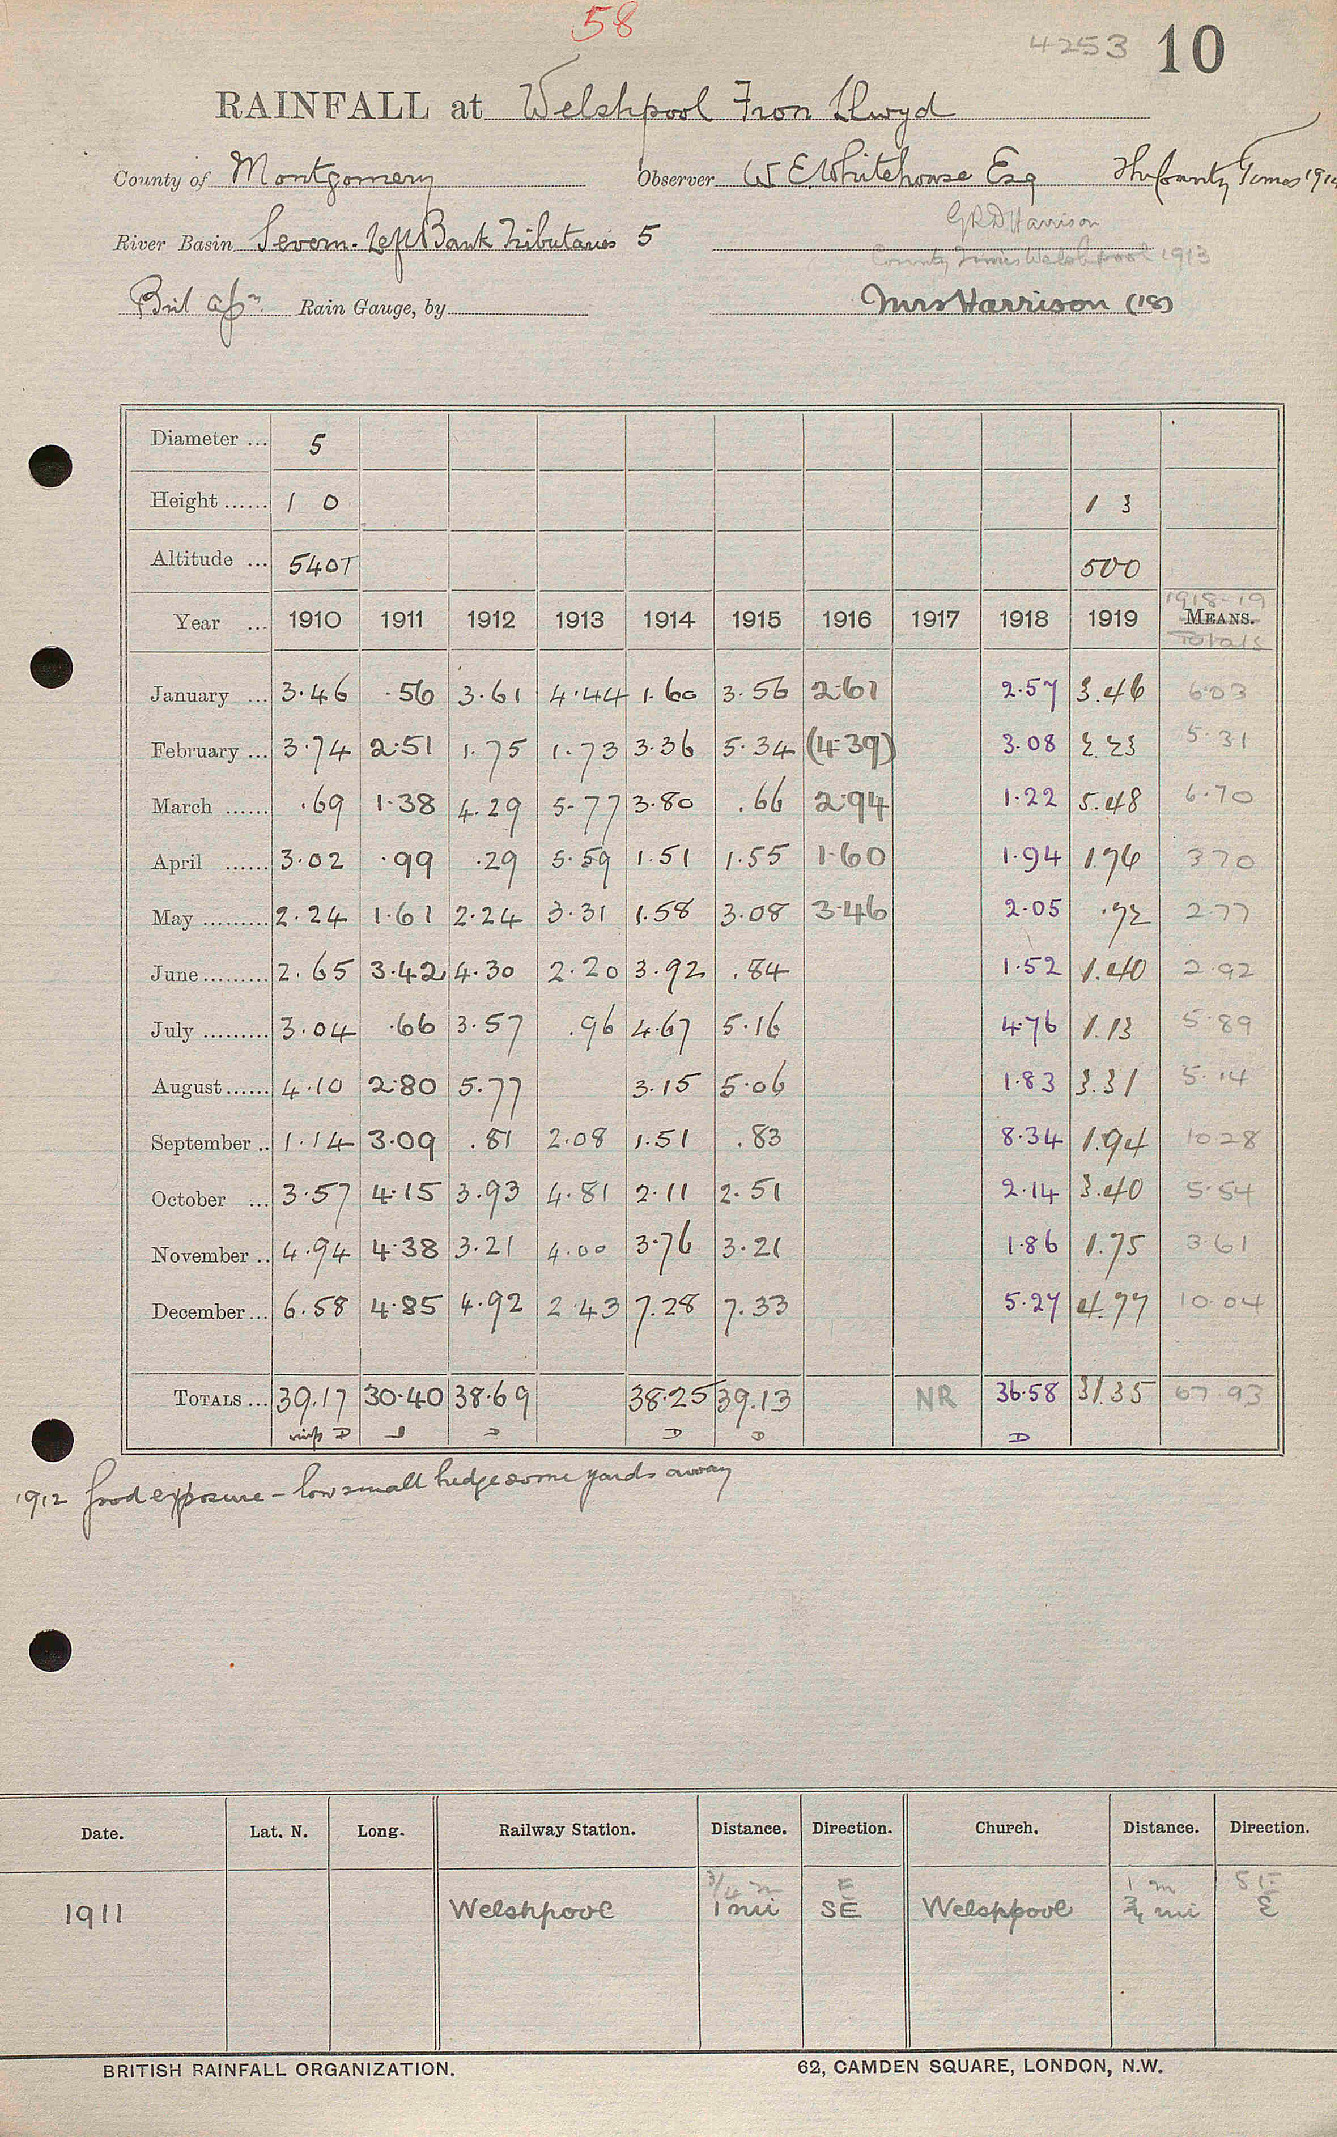 58
4253 10
RAINFALL at Welshpool Fron Llwyd
County of Montgomery Observer W E Whitehouse Esq The County Times 1914
River Basin Severn. Left Bank Tributaries 5 G R D Harrison
County Times Welshpool 1913
Rain Gauge, by Mrs Harrison (18)
Diameter ... 5
Height ...... 1 0 1 3
Altitude ... 540T 500
1918-19
Year ... 1910 1911 1912 1913 1914 1915 1916 1917 1918 1919 MEANS.
Totals
January ... 3.46 .56 3.61 4.44 1.60 3.56 2.61 2.57 3.46 6.03
February ... 3.74 2.51 1.75 1.73 3.36 5.34 (4.39) 3.08 2.23 5.31
March ...... .69 1.38 4.29 5.77 3.80 .66 2.94 1.22 5.48 6.70
April ...... 3.02 .99 .29 5.59 1.51 1.55 1.60 1.94 1.76 3.70
May ......... 2.24 1.61 2.24 3.31 1.58 3.08 3.46 2.05 .72 2.77
June ......... 2.65 3.42 4.30 2.20 3.92 .84 1.52 1.40 2.92
July ......... 3.04 .66 3.57 .96 4.67 5.16 4.76 1.13 5.89
August ...... 4.10 2.80 5.77 3.15 5.06 1.83 3.31 5.14
September .. 1.14 3.09 .81 2.08 1.51 .83 8.34 1.94 10.28
October ... 3.57 4.15 3.93 4.81 2.11 2.51 2.14 3.40 5.54
November .. 4.94 4.38 3.21 4.00 3.76 3.21 1.86 1.75 3.61
December ... 6.58 4.85 4.92 2.43 7.28 7.33 5.27 4.77 10.04
TOTALS ... 39.17 30.40 38.69 38.25 39.13 NR 36.58 31.35 67.93
D D D D
1912 Good exposure - low small hedge some yards away
Date. Lat. N. Long. Railway Station. Distance. Direction. Church. Distance. Direction.
3/4 m E 1 m SE
1911 Welshpool 1 mi SE Welshpool 3/4 mi E
BRITISH RAINFALL ORGANIZATION. 62, CAMDEN SQUARE, LONDON, N.W.